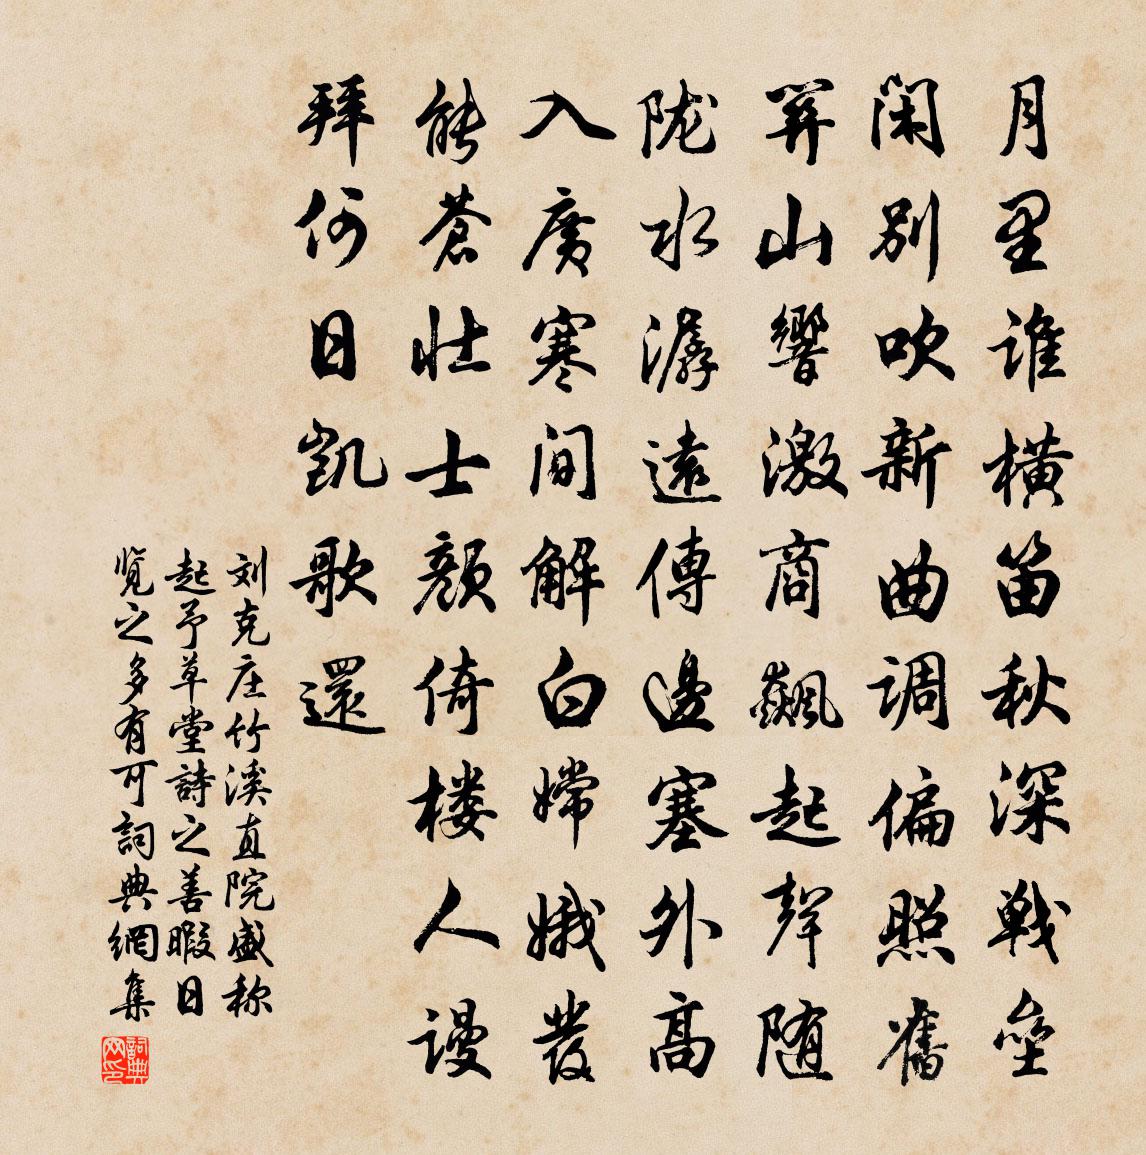 月里谁横笛秋深戦垒
闲别吹新曲调偏照舊
関山響激商飆起聲随
陇水潺遠傳邊塞外高
入廣寒间解白嫦娥發
能蒼壮士顔倚楼人谩
拜何日凯歌還
刘克庄竹溪直院盛称
起予草堂詩之善暇日
览之多有可詞典網集
詞典网印